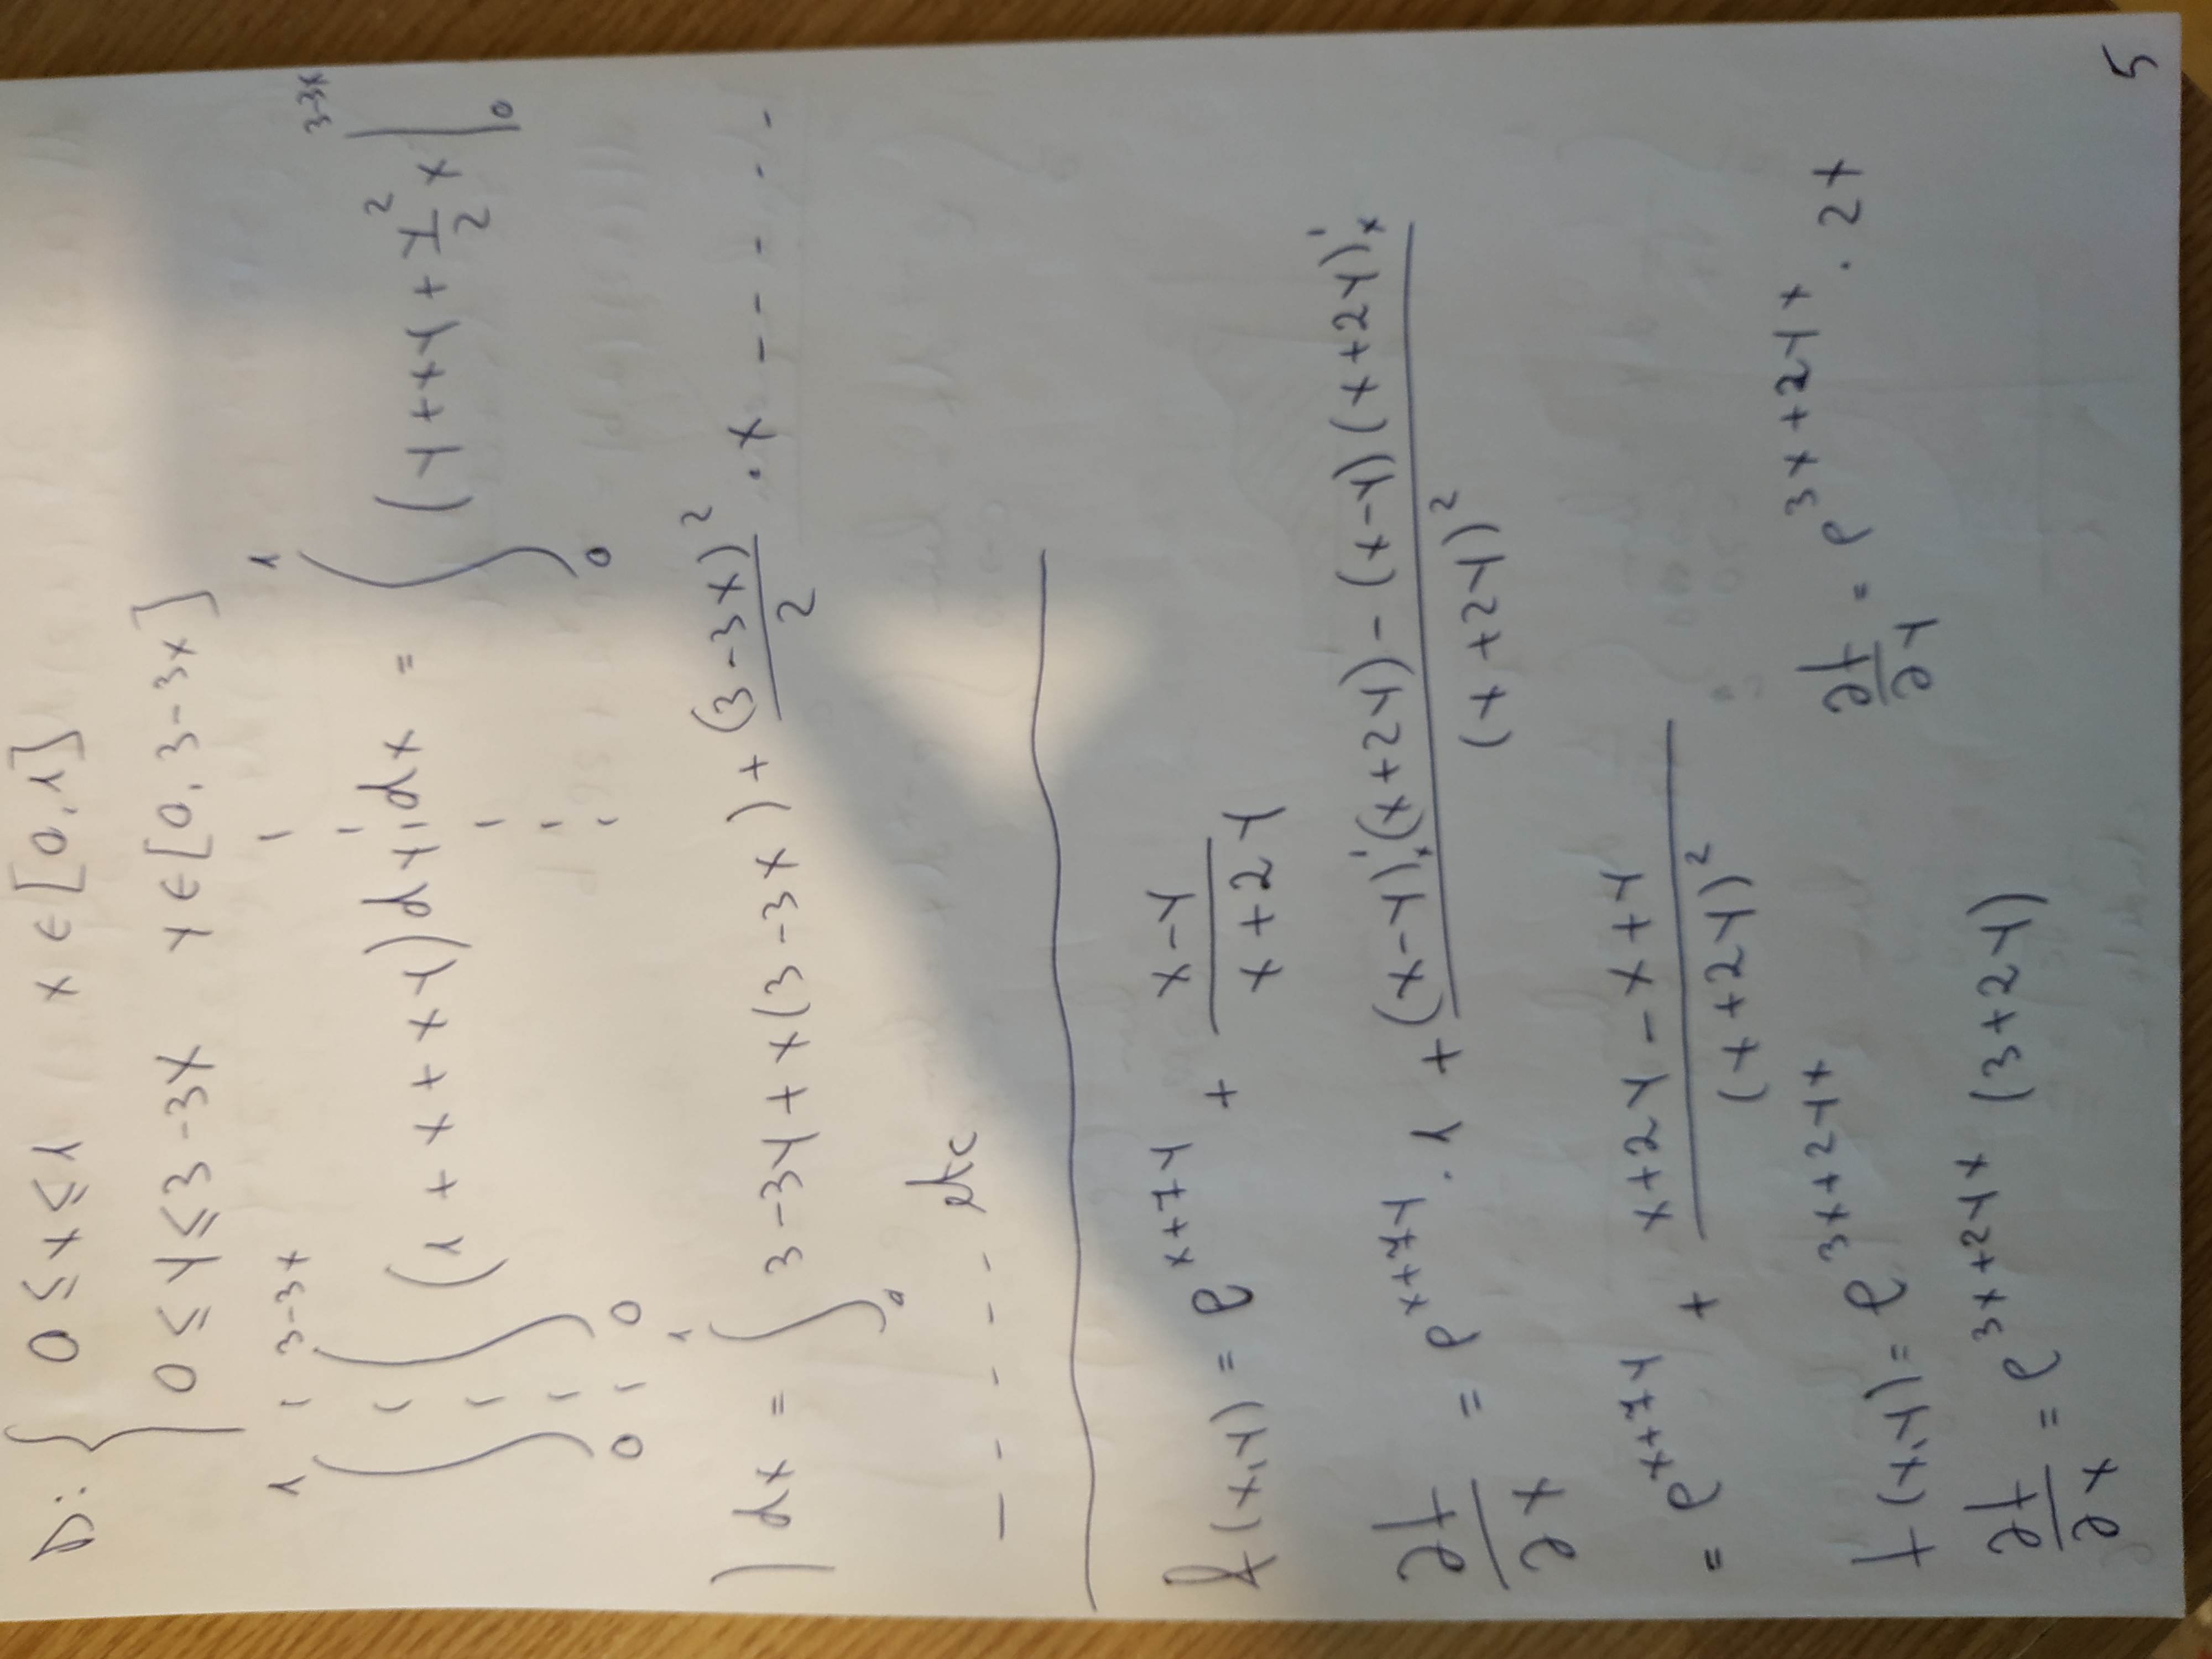 D: { 0 ≤ x ≤ 1   x ∈ [0,1]
0 ≤ y ≤ 3-3x   y ∈ [0, 3-3x]
∫₀¹ ∫₀^(3-3x) (1 + x + xy) dy dx = ∫₀¹ (y + xy + y²/2 x |₀^(3-3x)
) dx = ∫₀¹ 3-3y + x(3-3x) + (3-3x)²/2 · x - - - - -
- - - - - etc
f(x,y) = e^(x+7y) + (x-y)/(x+2y)
∂f/∂x = e^(x+7y) · 1 + ((x-y)'ₓ(x+2y) - (x-y)(x+2y)'ₓ)/(x+2y)²
= e^(x+7y) + (x+2y-x+y)/(x+2y)²
f(x,y) = e^(3x+2yx)   ∂f/∂y = e^(3x+2yx) · 2x
∂f/∂x = e^(3x+2yx) (3+2y)
5